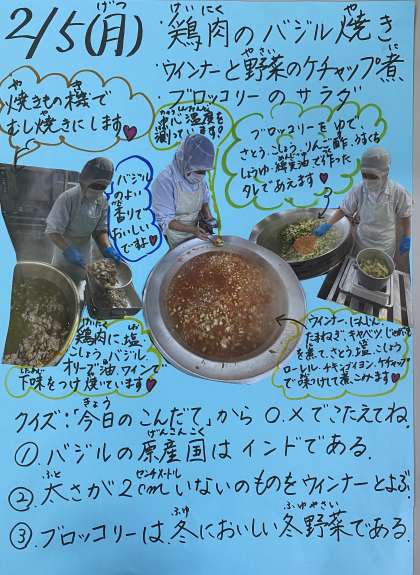 2/5(月)
・鶏肉のバジル焼き
・ウインナーと野菜のケチャップ煮
・ブロッコリーのサラダ
焼きもの機で
むし焼きにします♥
中心温度を
測っています!
ブロッコリーをゆで、
さとう、こしょう、りんご酢、うすくち
しょうゆ・綿実油で作った
タレであえます♥
バジル
のよい
香りで
おいしい
ですよ♥
鶏肉に塩・
こしょう、バジル、
オリーブ油、ワインで
下味をつけ焼いています♥
ウインナー、にんじん、
たまねぎ、キャベツ、じゃがいも
を煮て、さとう、塩、こしょう
ローレル、チキンブイヨン、ケチャップ
で味つけして煮こみます♥
クイズ:「今日のこんだて」から ○.×でこたえてね。
①.バジルの原産国はインドである.
②.太さが2cmいないのものをウインナーとよぶ
③.ブロッコリーは冬においしい冬野菜である.